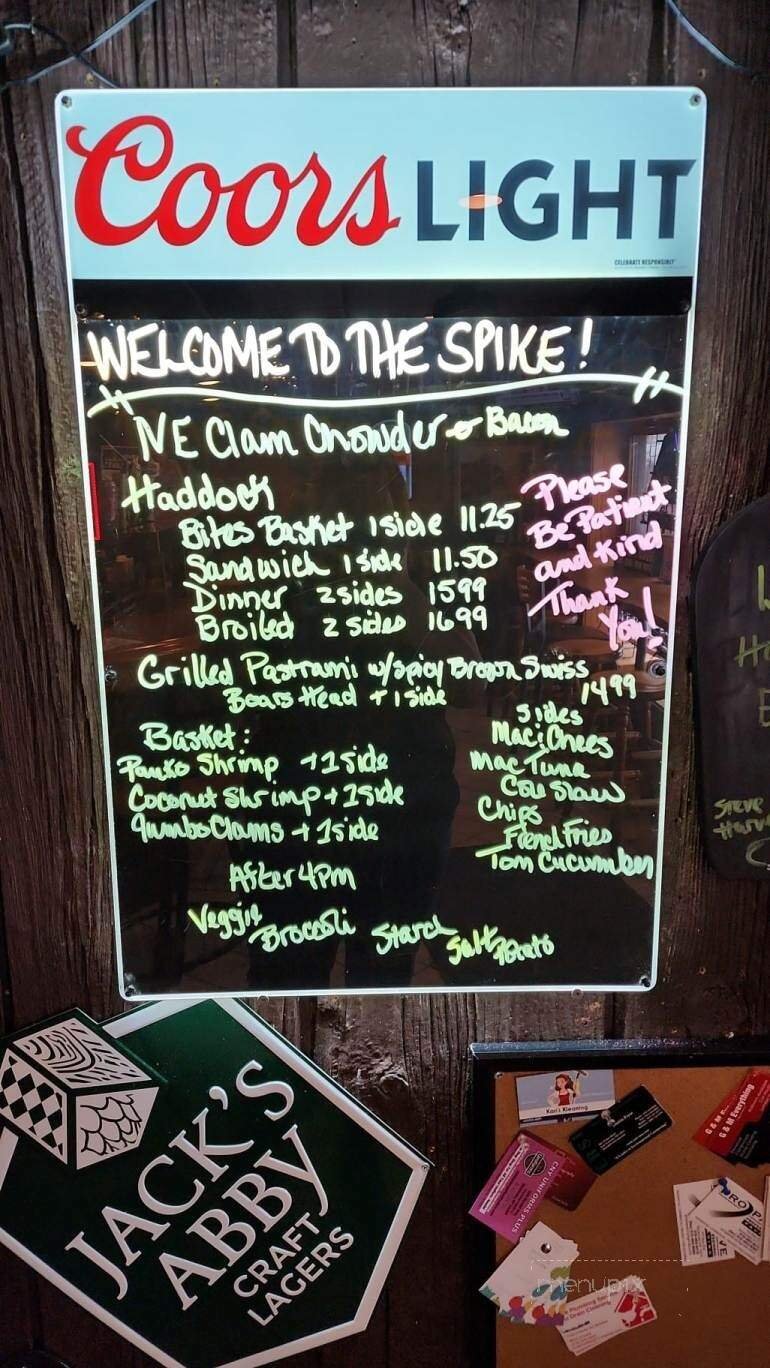 Coors LIGHT
CELEBRATE RESPONSIBLY
WELCOME TO THE SPIKE!
NE Clam Chowder Bacon
Haddock
Bites Basket 1 side 11.25
Sandwich 1 side 11.50
Dinner 2 sides 1599
Broiled 2 sides 1699
Please
Be Patient
and Kind
Thank
You!
Grilled Pastrami w/spicy Brown Swiss
Boars Head + 1 side 1499
Basket:
Panko Shrimp +1 side
Coconut Shrimp + 1 side
Jumbo Clams + 1 side
Sides
Mac i Chees
Mac Tuna
Cole Slaw
Chips
French Fries
Tom Cucumber
After 4pm
Veggie Broccoli Starch Salt Potato
Steve
JACK'S
ABBY
CRAFT
LAGERS
Kari's Kleaning
CNY UNIFORMS PLUS
G & M Everything
menupix